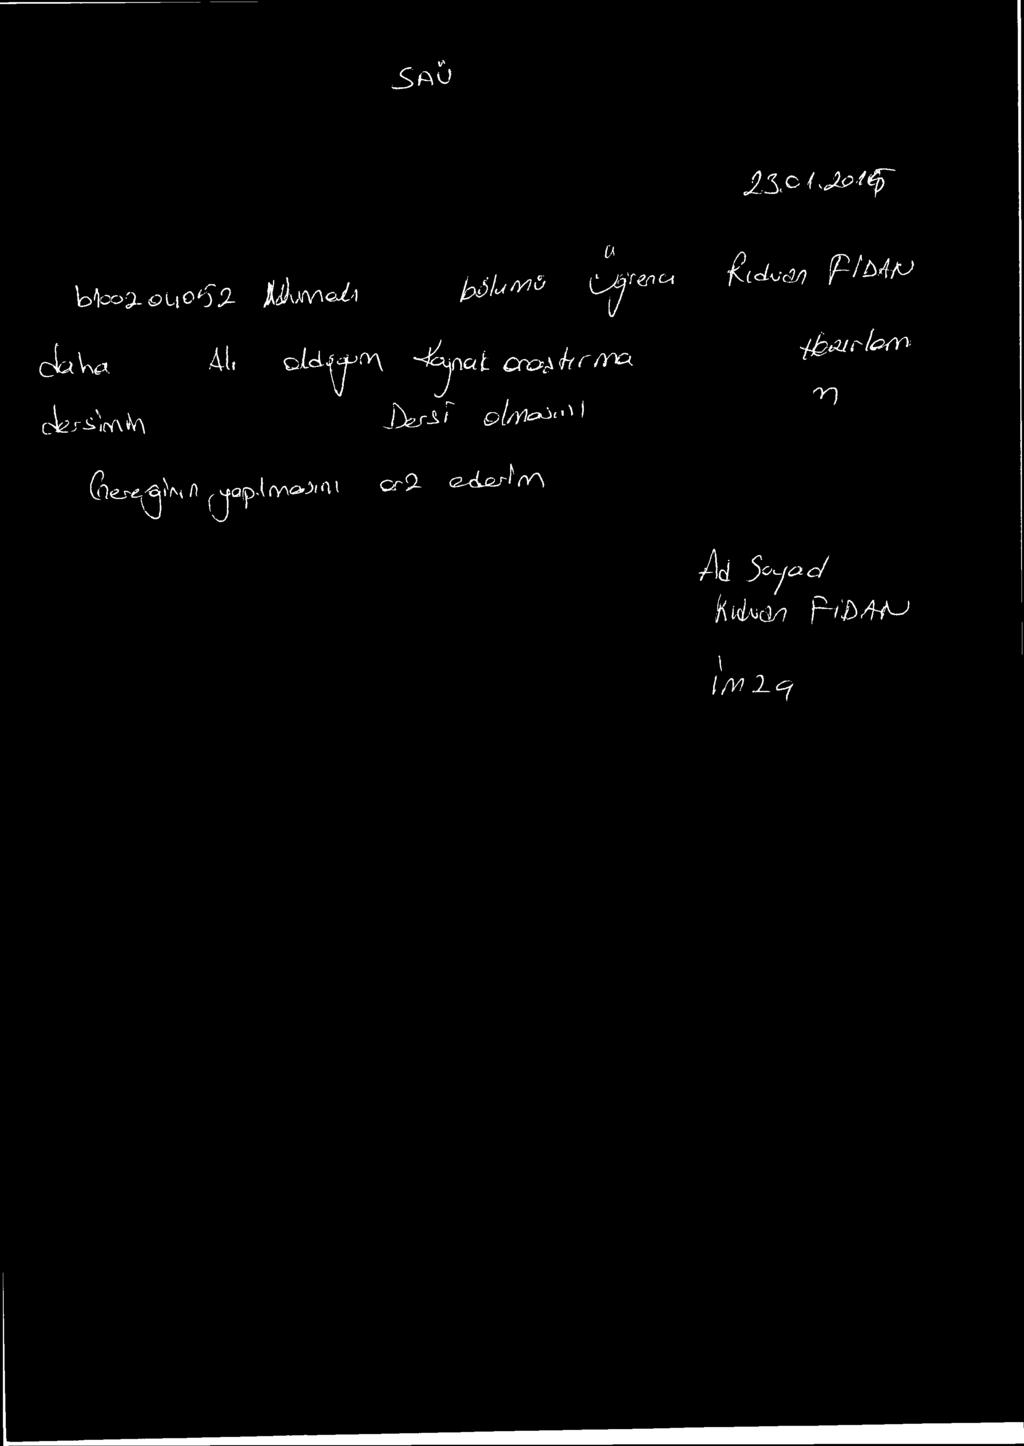 SAÜ
23.01.2015
b1002.04052 bölümü Rıdvan FİDAN
daha Alı aldığım Kaynak araştırma Hazırlam
dersimin Dersi olmasını n
Gereğinin yapılmasını arz ederim
Ad Soyad
Rıdvan FİDAN
imza